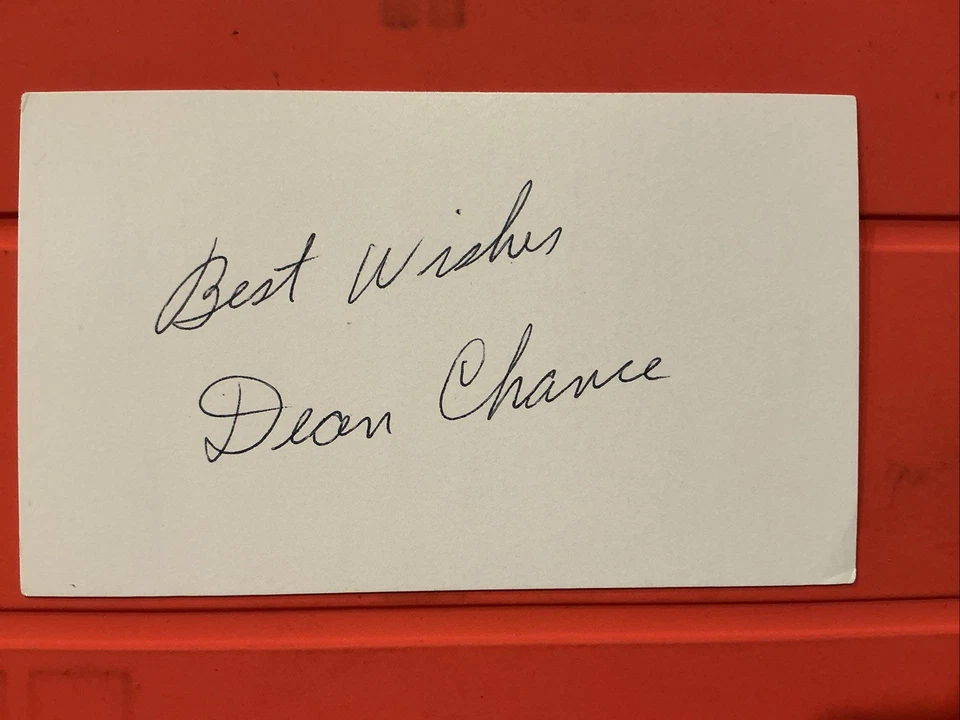 Best Wishes
Dean Chance